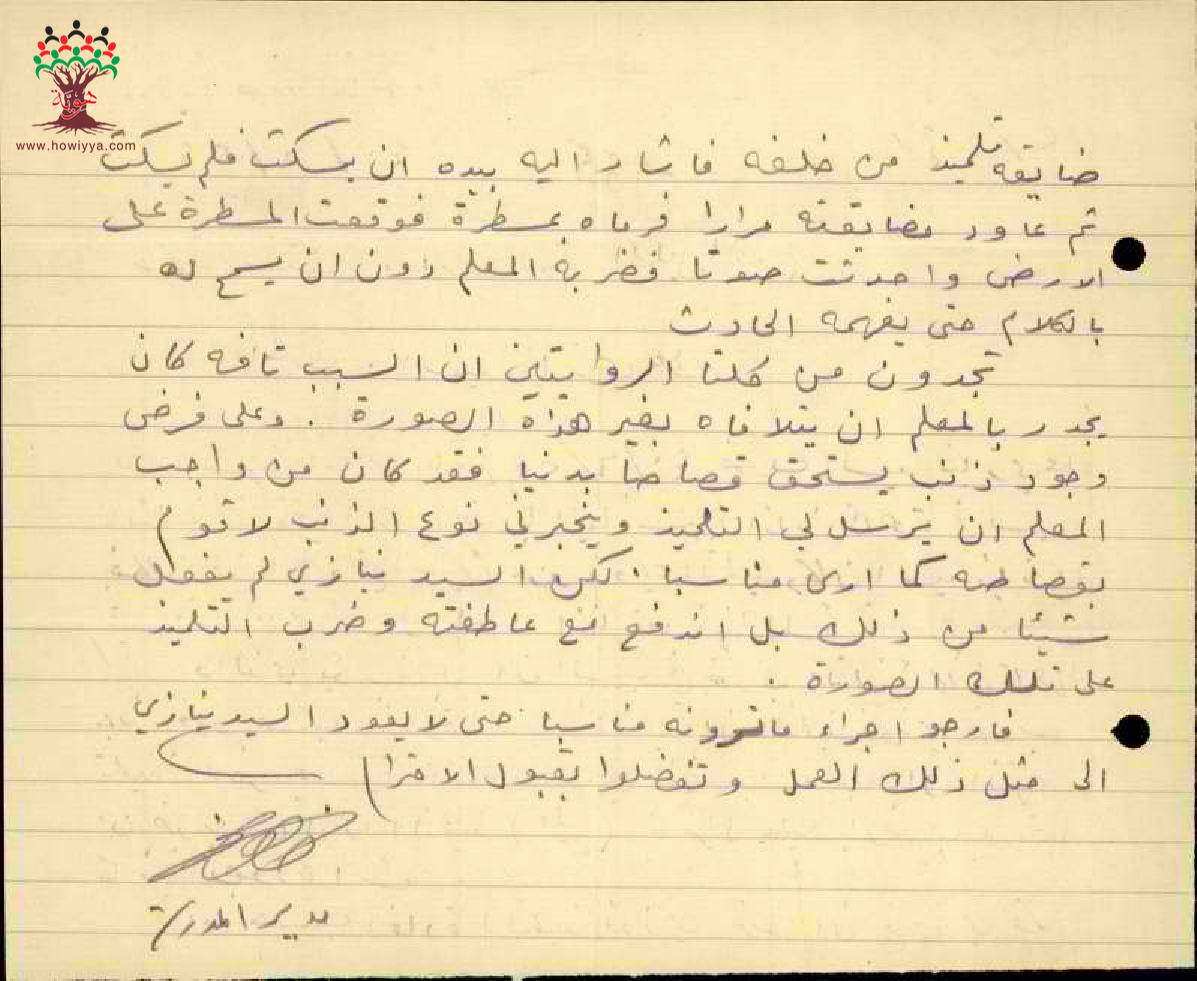 هوية
www.howiyya.com
ضايقه تلميذ من خلفه فاشار اليه بيده ان يسكت فلم يسكت
ثم عاود مضايقته مرارا فرماه بمسطرة فوقعت المسطرة على
الارض واحدثت صوتا فضربه المعلم دون ان يسمح له
بالكلام حتى يفهمه الحادث
تجدون من كلتا الروايتين ان السبب تافه كان
يجدر بالمعلم ان يتلافاه بغير هذه الصورة . وعلى فرض
وجود ذنب يستحق قصاصا بدنيا فقد كان من واجب
المعلم ان يرسل لي التلميذ ويخبرني نوع الذنب لاقوم
بقصاصه كما ارى مناسبا . لكن السيد نيازي لم يفعل
شيئا من ذلك بل اندفع مع عاطفته وضرب التلميذ
على تلك الصورة .
فارجو اجراء ماترونه مناسبا حتى لا يعود السيد نيازي
الى مثل ذلك العمل وتفضلوا بقبول الاحترام
مدير المدرسة